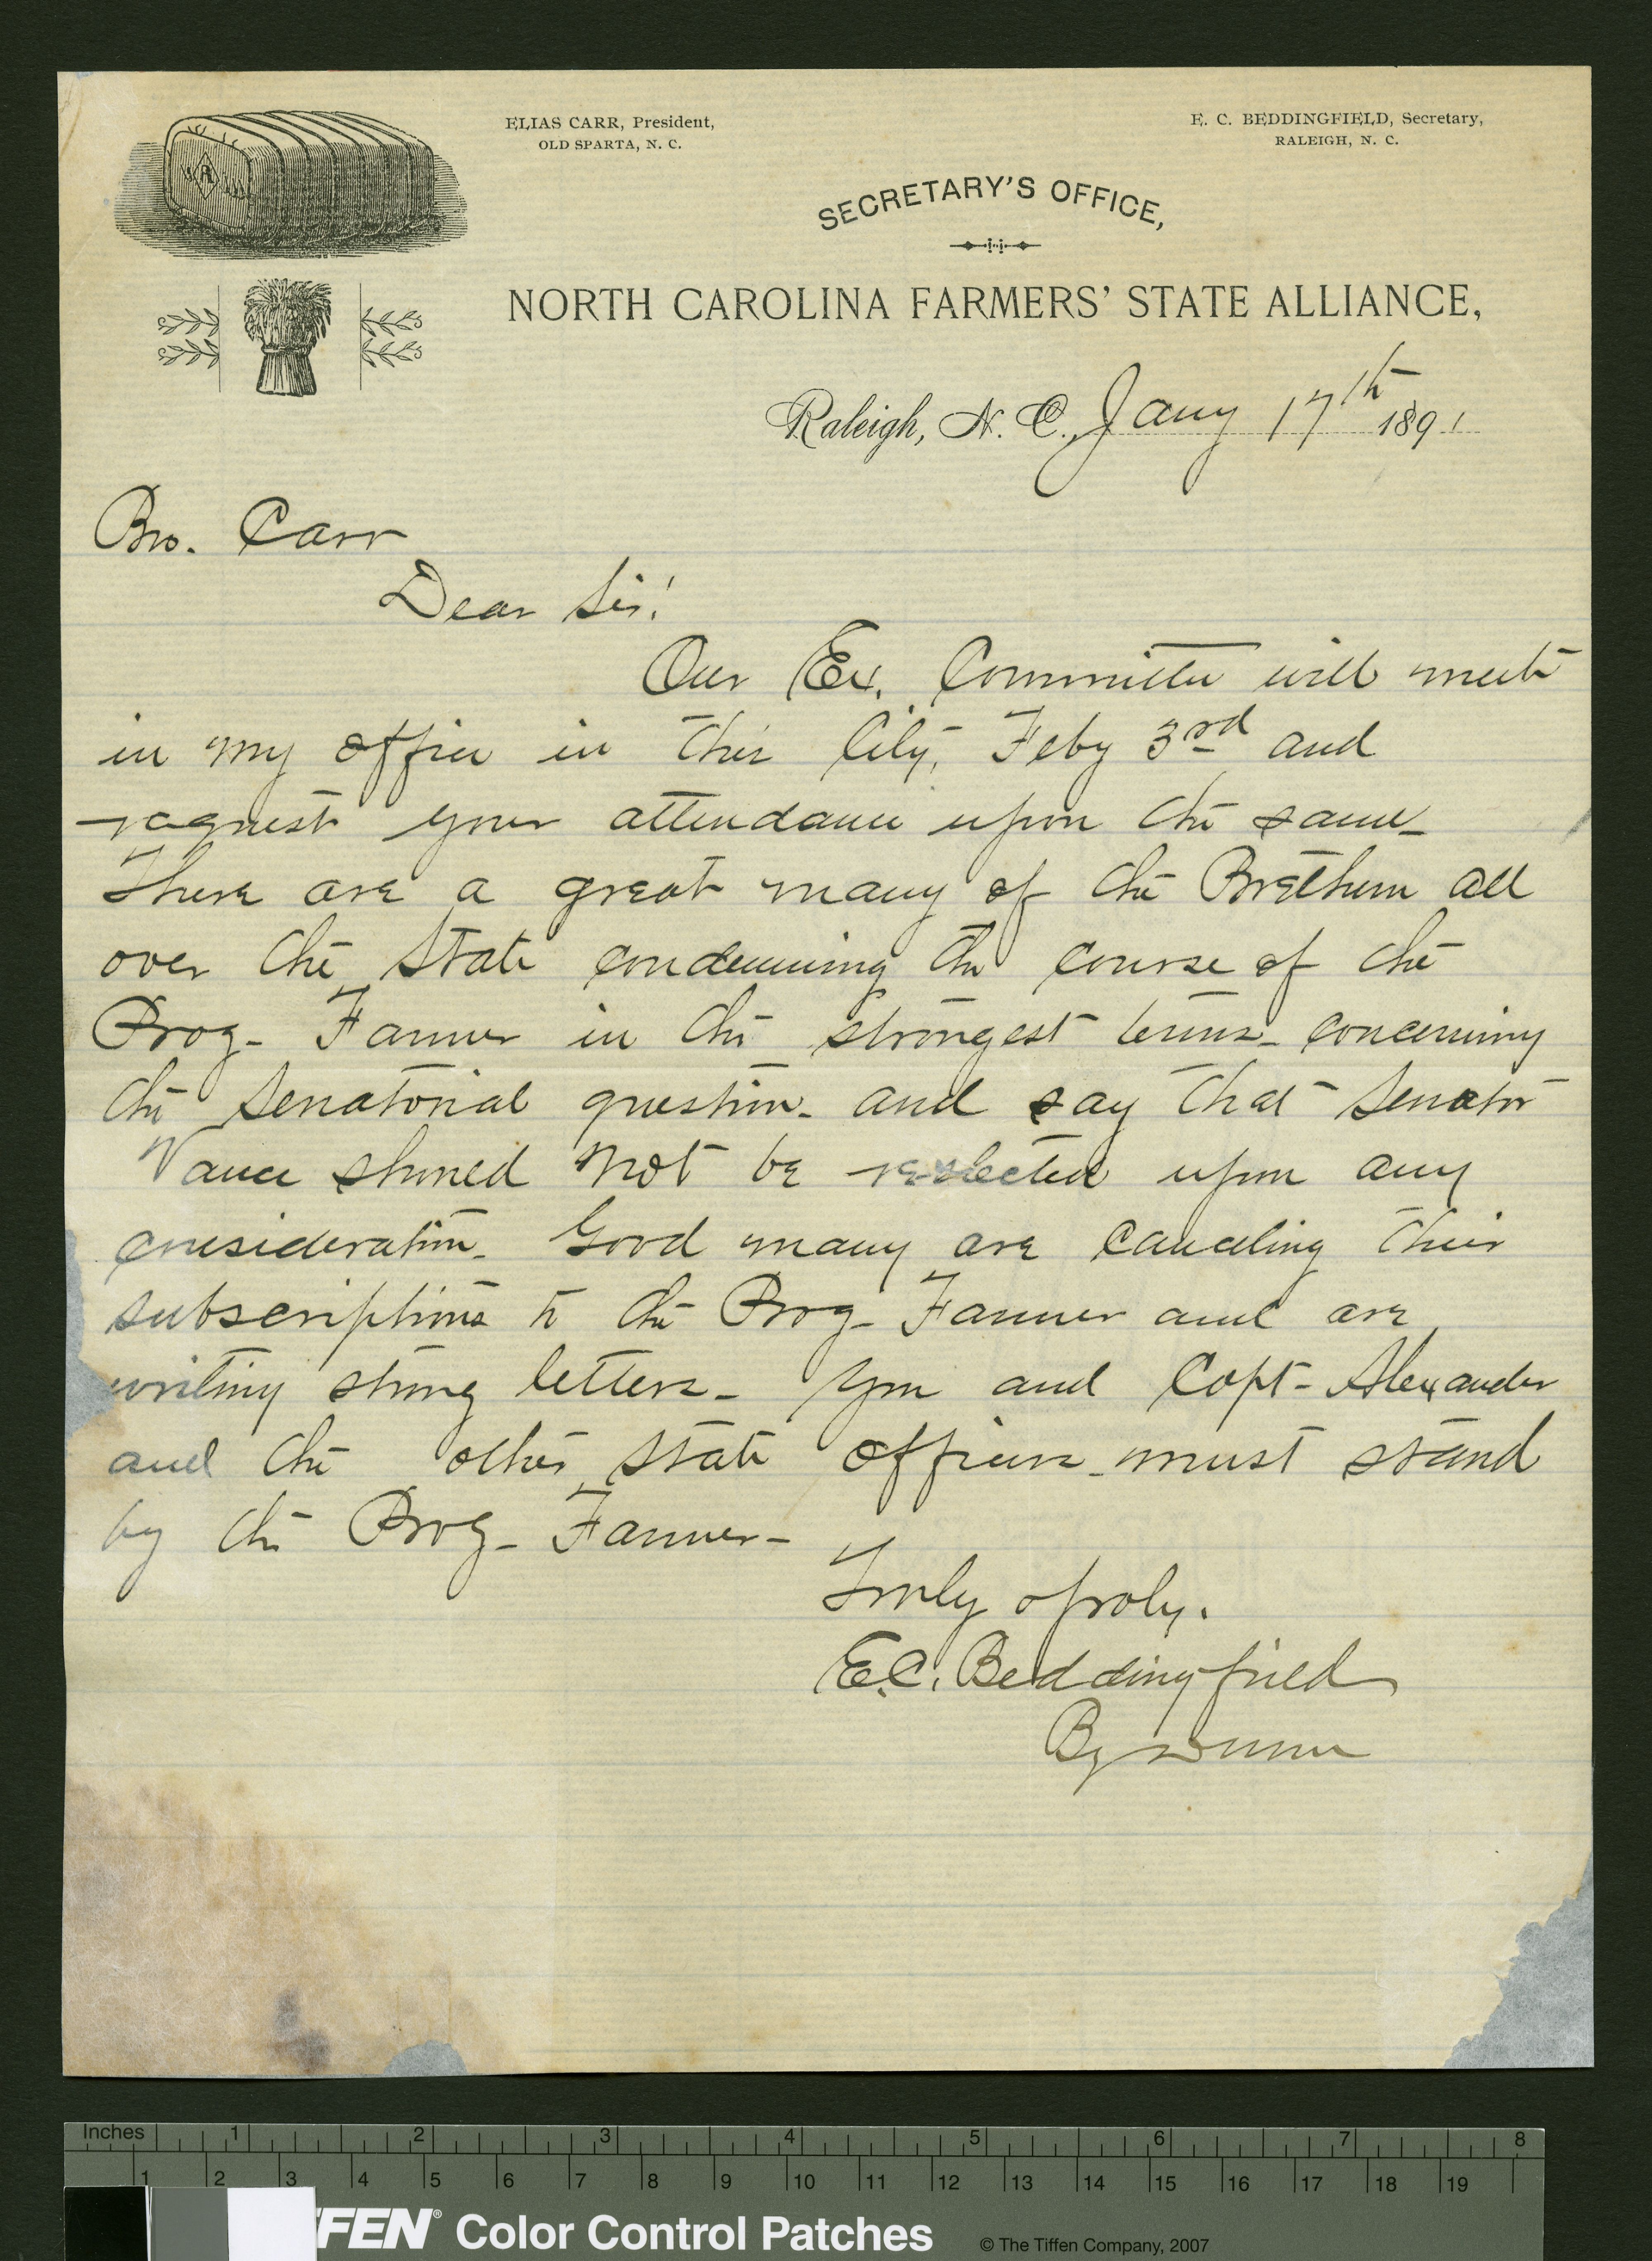 ELIAS CARR, President,
OLD SPARTA, N. C.
E. C. BEDDINGFIELD, Secretary,
RALEIGH, N. C.
SECRETARY'S OFFICE,
NORTH CAROLINA FARMERS' STATE ALLIANCE,
Raleigh, N. C., Jany 17th 1891
Bro. Carr
Dear Sir!
Our Ex. Committee will meet
in my office in this City, Feby 3rd and
request your attendance upon the same_
There are a great many of the Brethern all
over the State condemning the course of the
Prog- Farmer in the strongest terms_ concerning
the Senatorial question_ and say that Senator
Vance should not be re-elected upon any
consideration_ Good many are canceling their
subscriptions to the Prog- Farmer and are
writing strong letters_ You and Capt- Alexander
and the other State officers_must stand
by the Prog- Farmer-
Truly &
E.C. Beddingfield
By
Inches 1 2 3 4 5 6 7 8
1 2 3 4 5 6 7 8 9 10 11 12 13 14 15 16 17 18 19
FFEN® Color Control Patches © The Tiffen Company, 2007